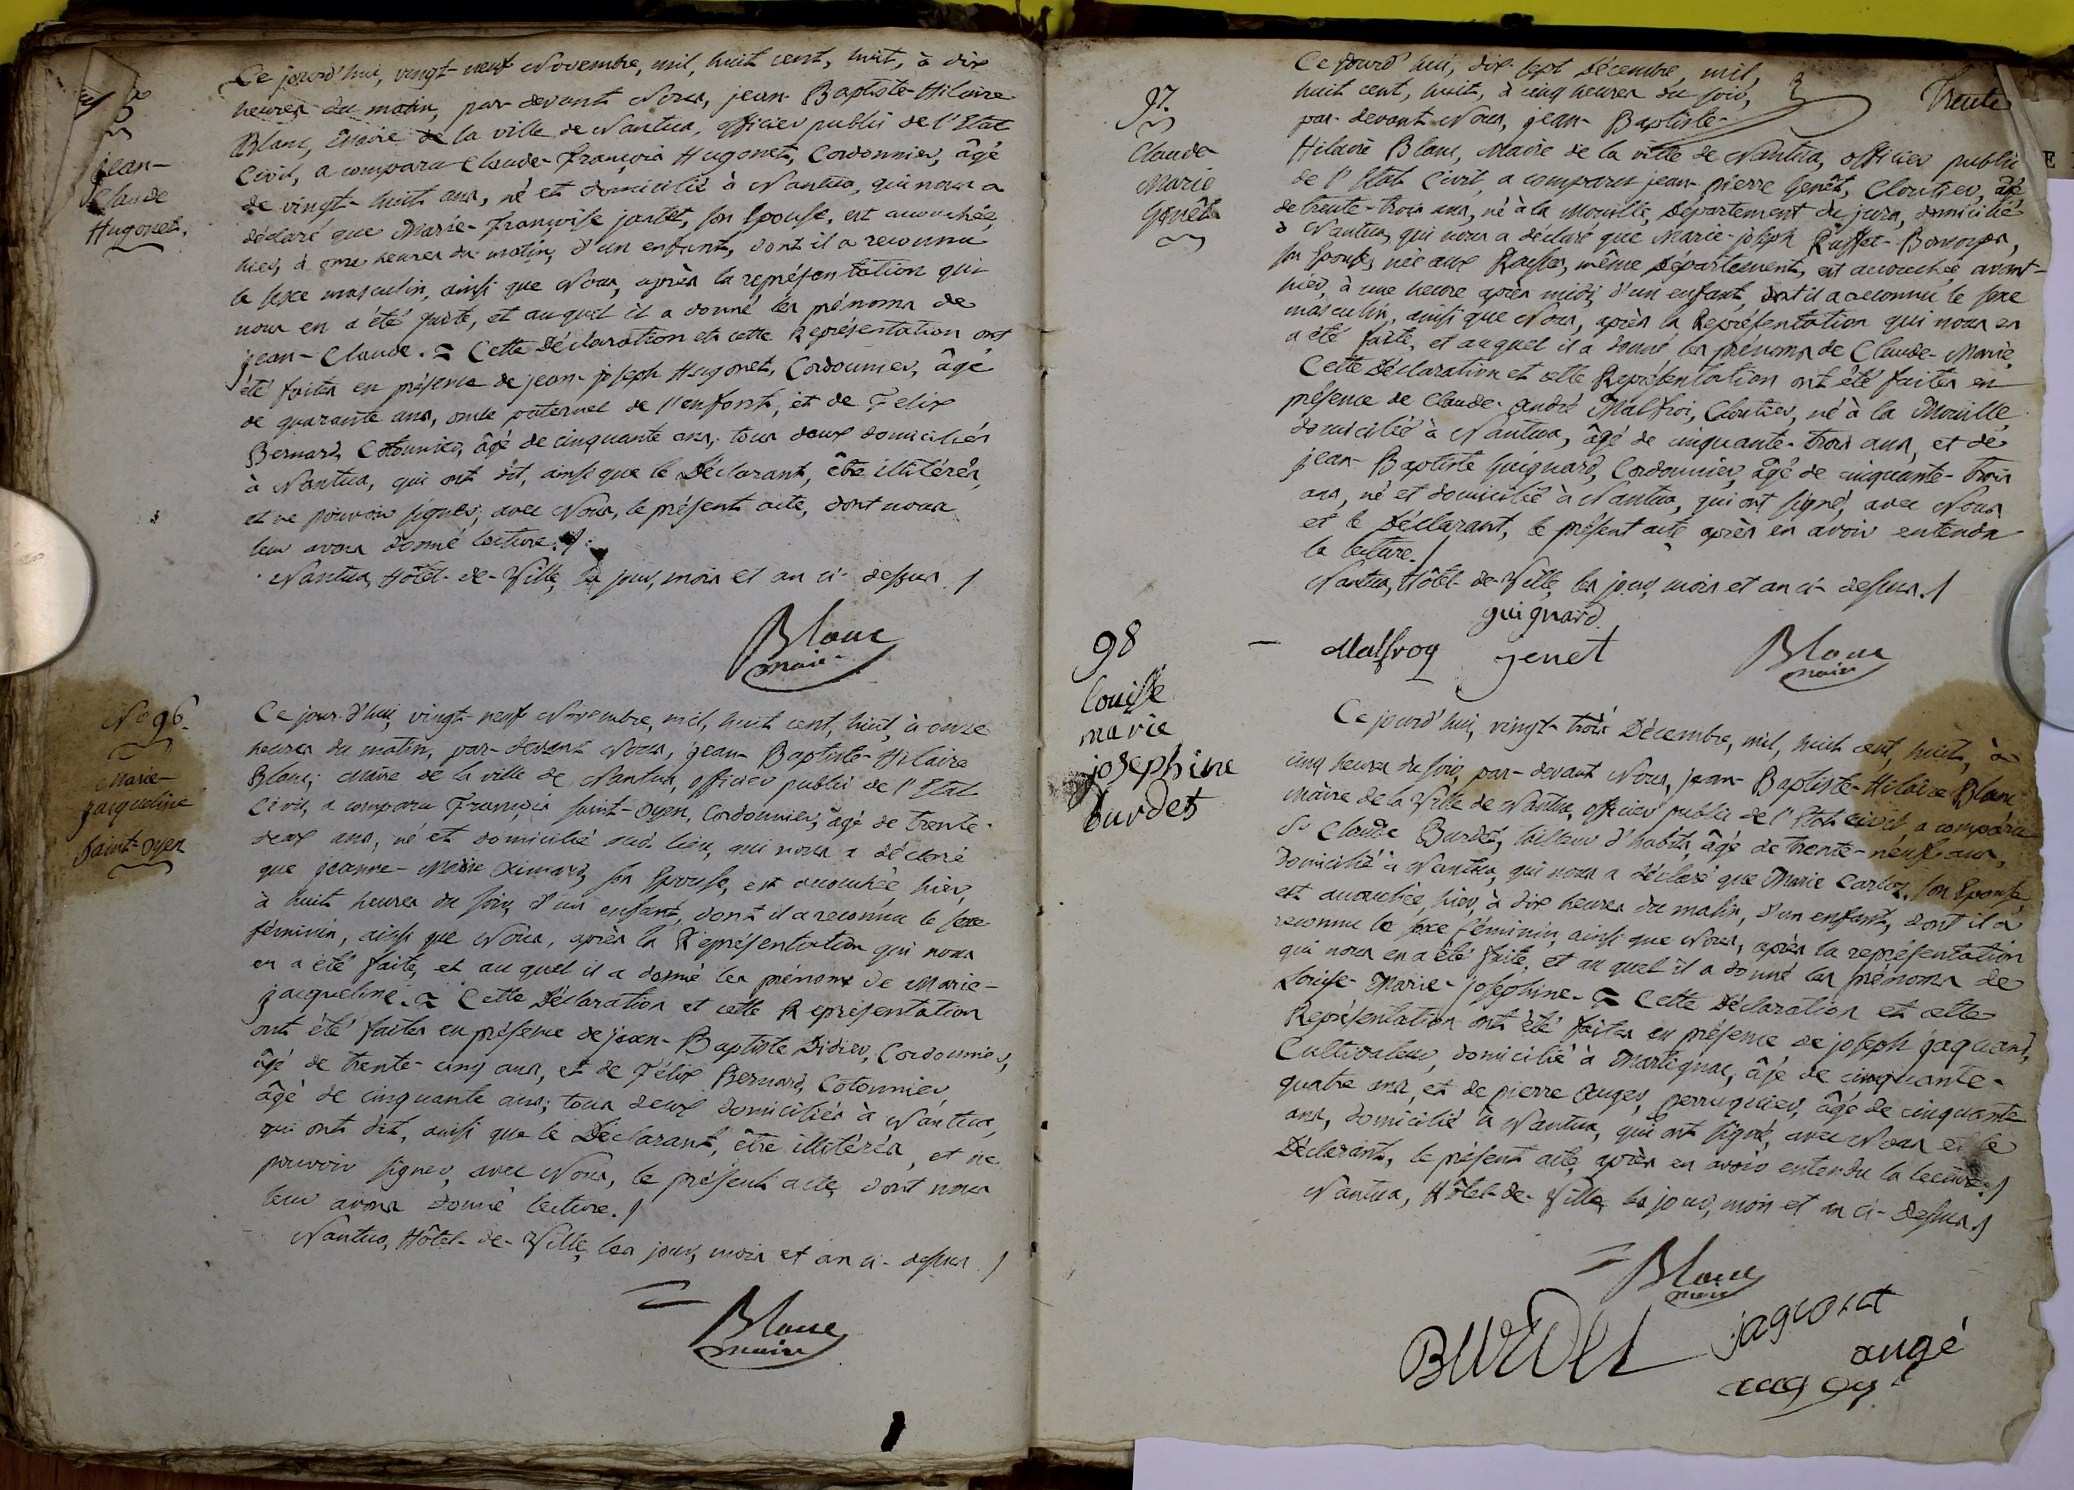 5
jean-
Claude
Hugonet.
Ce jourd'hui, vingt-neuf Novembre, mil, huit cent, huit, à dix
heures du matin, par-devant Nous, jean-Baptiste-Hilaire
Blanc, Maire de la ville de Nantua, officier public de l'Etat
Civil, a comparu Claude-françois Hugonet, Cordonnier, âgé
de vingt-huit ans, né et domicilié à Nantua, qui nous a
déclaré que Marie-françoise jantet, son Epouse, est accouchée,
hier, à onze heures du matin, d'un enfant, dont il a reconnu
le sexe masculin, ainsi que Nous, après la représentation qui
nous en a été faite, et auquel il a donné les prénoms de
jean-Claude. = Cette Déclaration et cette Représentation ont
été faites en présence de jean-joseph Hugonet, Cordonnier, âgé
de quarante ans, oncle paternel de l'enfant, et de Félix
Bernard, Cotonnier, âgé de cinquante ans; tous deux domiciliés
à Nantua, qui ont dit, ainsi que le Déclarant, être illitérés,
et ne pouvoir signer, avec Nous, le présent acte, dont nous
leur avons donné lecture./.
Nantua, Hôtel-de-Ville, les jour, mois et an ci-dessus./
Blanc
maire
No 96.
Marie-
jacqueline
Saint-Oyen
Ce jour d'hui, vingt-neuf Novembre, mil, huit cent, huit, à onze
heures du matin, par-devant Nous, jean-Baptiste-Hilaire
Blanc, Maire de la ville de Nantua, officier public de l'Etat
Civil, a comparu François Saint-Oyen, Cordonnier, âgé de trente-
deux ans, né et domicilié audit lieu, qui nous a déclaré
que jeanne-Marie Aimard, son Epouse, est accouchée, hier,
à huit heures du soir, d'un enfant, dont il a reconnu le sexe
féminin, ainsi que Nous, après la Représentation qui nous
en a été faite, et auquel il a donné les prénoms de Marie-
jacqueline. = Cette Déclaration et cette Représentation
ont été faites en présence de jean-Baptiste Didier, Cordonnier,
âgé de trente-cinq ans, et de Félix Bernard, Cotonnier,
âgé de cinquante ans; tous deux domiciliés à Nantua,
qui ont dit, ainsi que le Déclarant, être illitérés, et ne
pouvoir signer, avec Nous, le présent acte, dont nous
leur avons donné lecture./
Nantua, Hôtel-de-Ville, les jour, mois et an ci-dessus./
Blanc
maire
Trente
97.
Claude
Marie
Genêt
Ce jourd'hui, dix-sept Décembre, mil,
huit cent, huit, à cinq heures du soir,
par-devant Nous, jean-Baptiste-
Hilaire Blanc, Maire de la ville de Nantua, officier public
de l'Etat Civil, a comparu jean-pierre Genêt, Cloutier, âgé
de trente-trois ans, né à la Mouille, Département du jura, domicilié
à Nantua, qui nous a déclaré que Marie-joseph
son Epouse, née aux Rousses, même Département, est accouchée, avant-
hier, à une heure après midi, d'un enfant, dont il a reconnu le sexe
masculin, ainsi que Nous, après la Représentation qui nous en
a été faite, et auquel il a donné les prénoms de Claude-Marie.
Cette Déclaration et cette Représentation ont été faites en
présence de Claude-André Malfroi, Cloutier, né à la Mouille,
domicilié à Nantua, âgé de cinquante-trois ans, et de
jean-Baptiste Guignard, Cordonnier, âgé de cinquante-trois
ans, né et domicilié à Nantua, qui ont signé, avec Nous
et le Déclarant, le présent acte après en avoir entendu
la lecture./
Nantua, Hôtel-de-Ville, les jour, mois et an ci-dessus./
guignard
Malfroy genet Blanc
maire
98
Louise
marie
josephine
burdet
Ce jourd'hui, vingt-trois Décembre, mil, huit cent, huit, à
cinq heures du soir, par-devant Nous, jean-Baptiste-Hilaire Blanc
Maire de la Ville de Nantua, officier public de l'Etat civil, a comparu
Sr Claude Burdet, tailleur d'habits, âgé de trente-neuf ans,
domicilié à Nantua, qui nous a déclaré que Marie Carloz, son Epouse,
est accouchée, hier, à dix heures du matin, d'un enfant, dont il a
reconnu le sexe féminin, ainsi que Nous, après la représentation
qui nous en a été faite, et auquel il a donné les prénoms de
Louise-Marie-josephine. = Cette Déclaration et cette
Représentation ont été faites en présence de joseph jaquand,
Cultivateur, domicilié à Martignat, âgé de cinquante-
quatre ans, et de pierre Auger, perruquier, âgé de cinquante
ans, domicilié à Nantua, qui ont signé, avec Nous et le
Déclarant, le présent acte, après en avoir entendu la lecture./
Nantua, Hôtel-de-Ville, les jour, mois et an ci-dessus./
Blanc
maire
Burdet jaquand
augé